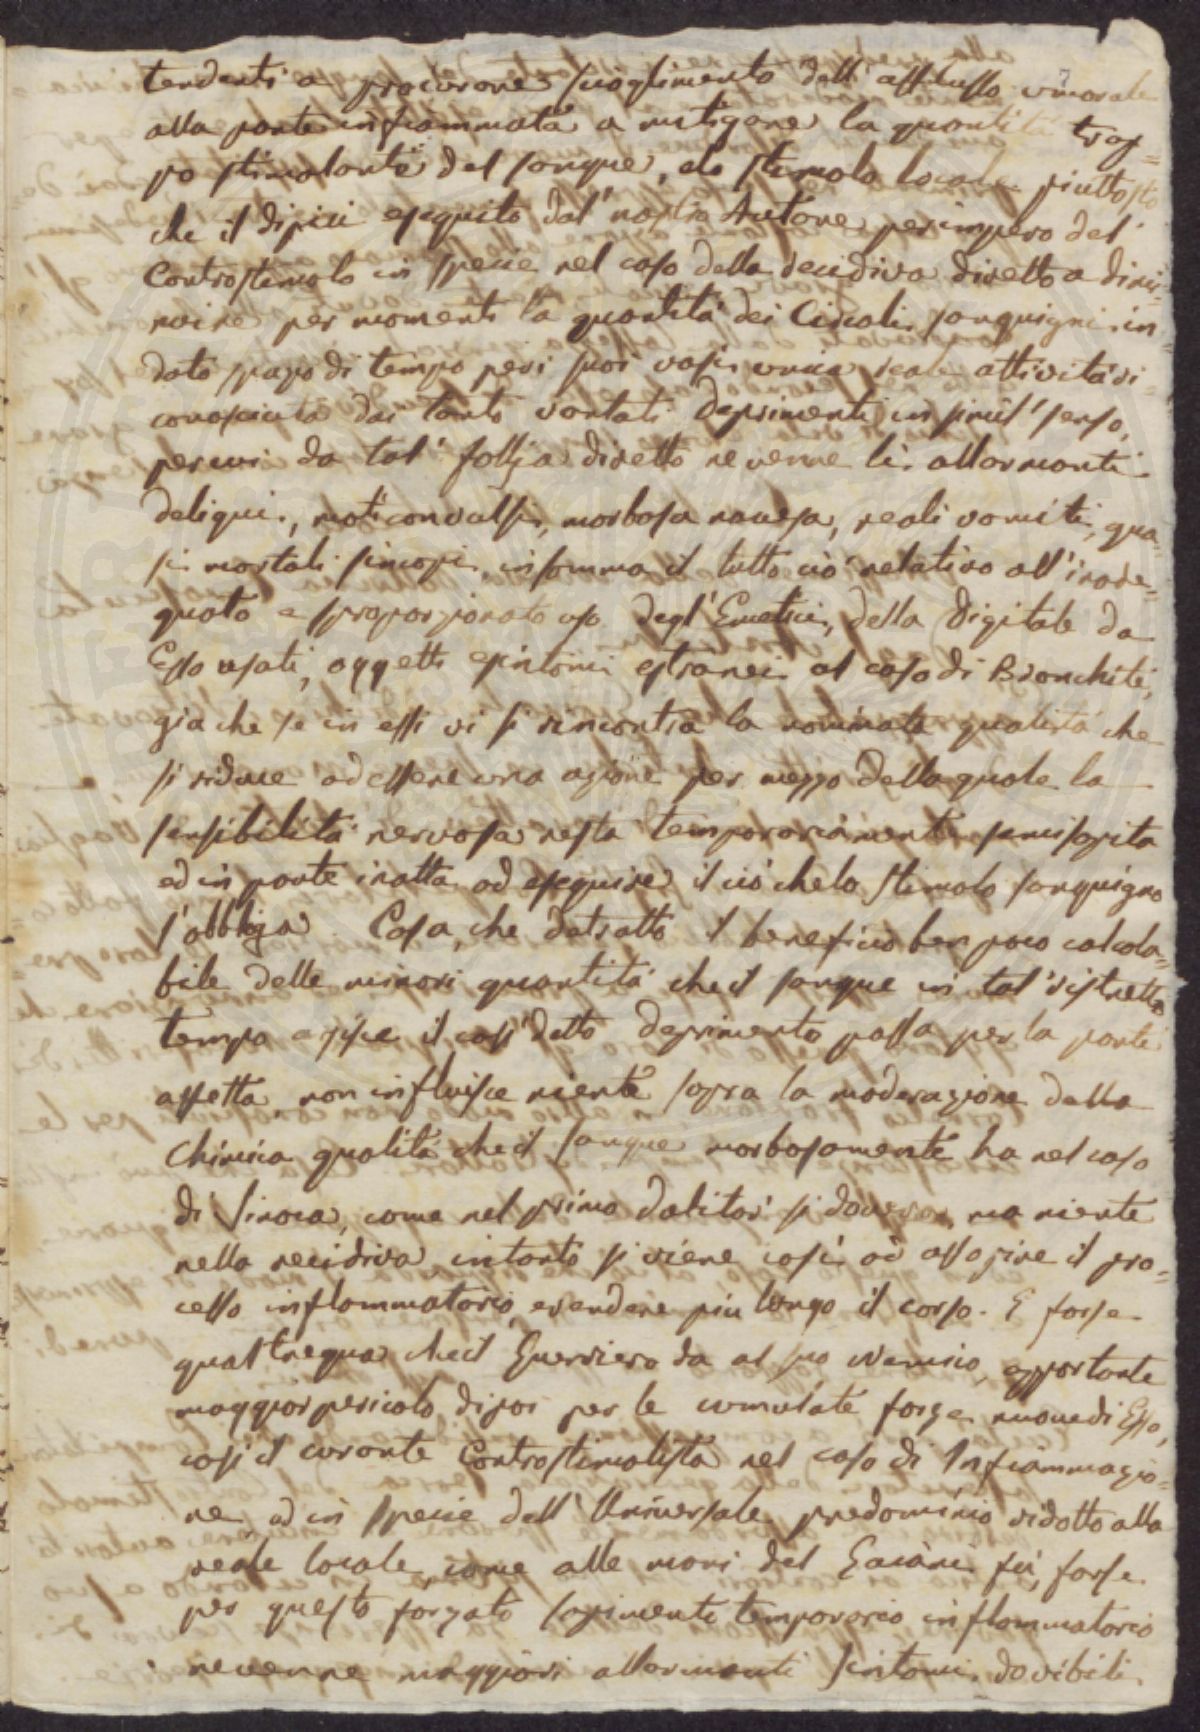 tendenti a procurone scioglimento dell' afflusso umorale
alla parte infiammata a mitigare la quantità trop=
po stimolante del sangue, elo stimolo locale piuttosto
che il dipiù eseguito dal' nostro Autore per impero del'
Controstimolo in specie nel caso della recidiva diretto a dimi=
nuire per momenti la quantità dei Circoli sanguigni in
dato spazo di tempo pei suoi vasi unica reale attività ri=
conosciuta dai tanti vantati deprimenti in simil' senso,
per cui da tal' follja diretto ne venne li allarmanti
deliqui, moti convulsi, morbosa nausea, reali vomiti, qua=
si mortali sincopi, insomma il tutto ciò relativo all' inade=
quato e sproporzionato uso degl' Emetici, della Digitale da
Esso usati, oggetti e sintomi estranei al caso di Bronchite,
gia che se in essi vi si rincontra la nominata qualità che
si riduce ad essere una azione per mezzo della quale la
sensibilità nervosa resta temporariamente semisopita
ed in parte inatta ad eseguire il ciò che lo stimolo sanguigno
l' obbliga Cosa, che detratto il beneficio ben poco calcola=
bile delle minori quantità che il sangue in tal' ristretto
tempo agisce il così detto deprimento passa per la parte
affetta non influisce niente sopra la moderazione della
Chimica qualità che il sangue morbosamente ha nel caso
di Sinoca, come nel primo si doveva, ma niente
nella recidiva intanto si viene così ad assopire il pro=
cesso inflammatorio, e rendere più lungo il corso. E forse
qual tregua che il Guerriero da al suo Nemico, apportante
maggior pericolo dipoi per le cumulate forze nuove di Esso,
così il curante Controstimolista nel caso di Infiammazio=
ne ad in specie dell' Universale predominio ridotto alla
reale locale, come alle mani del fù, forse
per questo forzato sopimento temporario inflammatorio
ne venne maggiori allarmanti sintomi dovibili